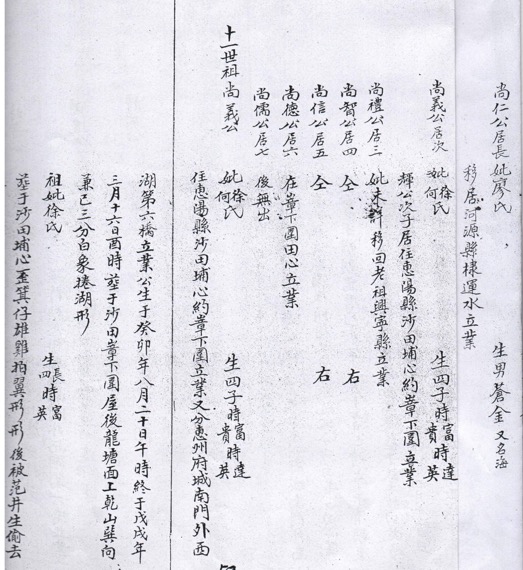 尚仁公居長妣廖氏 生男蒼金又名海
移居河源縣棣運水立業
尚義公居次 妣徐氏 何 生四子時富 時達 貴 英
輝公次子居住惠陽縣沙田埔心約崋下圍立業
尚禮公居三 妣未詳移回老祖興寧縣立業
尚智公居四 仝 右
尚信公居五 仝 右
尚德公居六 在崋下圍田心立業
尚儒公居七 後無出
十一世祖尚義公 妣徐氏 何 生四子時富 時達 貴 英
住惠陽縣沙田埔心約崋下圍立業又分惠州府城南門外西
湖第六橋立業公生于癸卯年八月二十日午時終于戊戌年
三月十六日酉時葬于沙田崋下圍屋後龍塘面上乾山巽向
兼已三分白象捲湖形
祖妣徐氏 生長時富 四 英
葬于沙田埔心歪箕仔雄雞拍翼形形後被范井生偷去